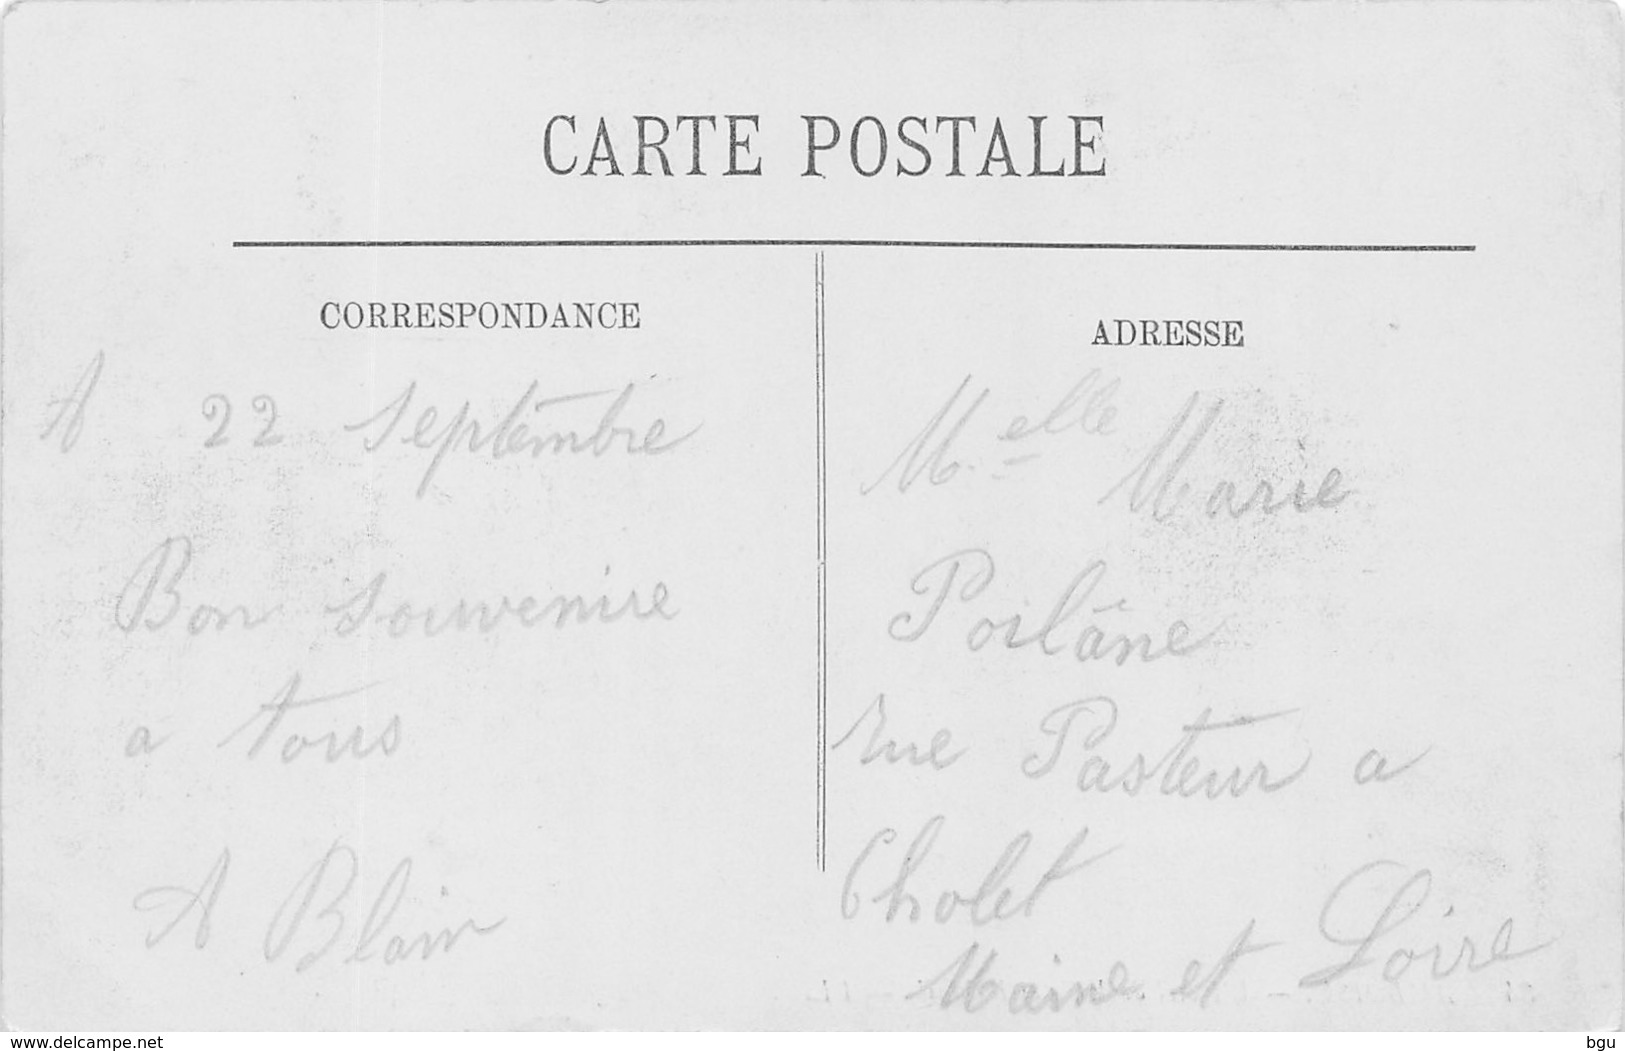 CARTE POSTALE
CORRESPONDANCE
A 22 Septembre
Bon souvenire
a tous
A Blain
ADRESSE
Melle Marie
Poilâne
rue Pasteur a
Cholet
Maine et Loire
www.delcampe.net
bgu